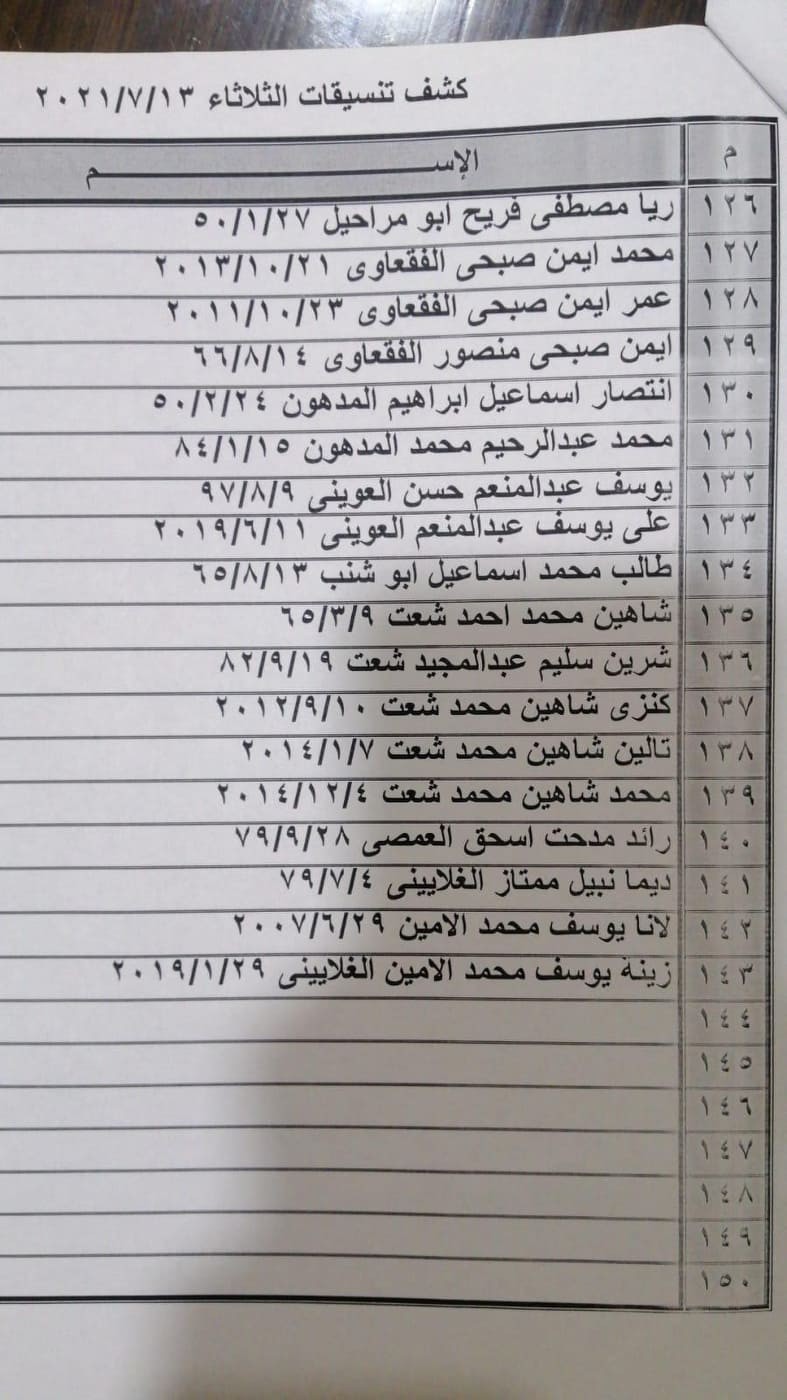 كشف تنسيقات الثلاثاء ٢٠٢١/٧/١٣
م الإســـــــــــــــم
١٢٦ ريا مصطفى فريح ابو مراحيل ٥٠/١/٢٧
١٢٧ محمد ايمن صبحى الفقعاوى ٢٠١٣/١٠/٢١
١٢٨ عمر ايمن صبحى الفقعاوى ٢٠١١/١٠/٢٣
١٢٩ ايمن صبحى منصور الفقعاوى ٦٦/٨/١٤
١٣٠ انتصار اسماعيل ابراهيم المدهون ٥٠/٢/٢٤
١٣١ محمد عبدالرحيم محمد المدهون ٨٤/١/١٥
١٣٢ يوسف عبدالمنعم حسن العوينى ٩٧/٨/٩
١٣٣ على يوسف عبدالمنعم العوينى ٢٠١٩/٦/١١
١٣٤ طالب محمد اسماعيل ابو شنب ٦٥/٨/١٣
١٣٥ شاهين محمد احمد شعت ٦٥/٣/٩
١٣٦ شرين سليم عبدالمجيد شعت ٨٢/٩/١٩
١٣٧ كنزى شاهين محمد شعت ٢٠١٢/٩/١٠
١٣٨ تالين شاهين محمد شعت ٢٠١٤/١/٧
١٣٩ محمد شاهين محمد شعت ٢٠١٤/١٢/٤
١٤٠ رائد مدحت اسحق العمصى ٧٩/٩/٢٨
١٤١ ديما نبيل ممتاز الغلايينى ٧٩/٧/٤
١٤٢ لانا يوسف محمد الامين ٢٠٠٧/٦/٢٩
١٤٣ زينة يوسف محمد الامين الغلايينى ٢٠١٩/١/٢٩
١٤٤
١٤٥
١٤٦
١٤٧
١٤٨
١٤٩
١٥٠